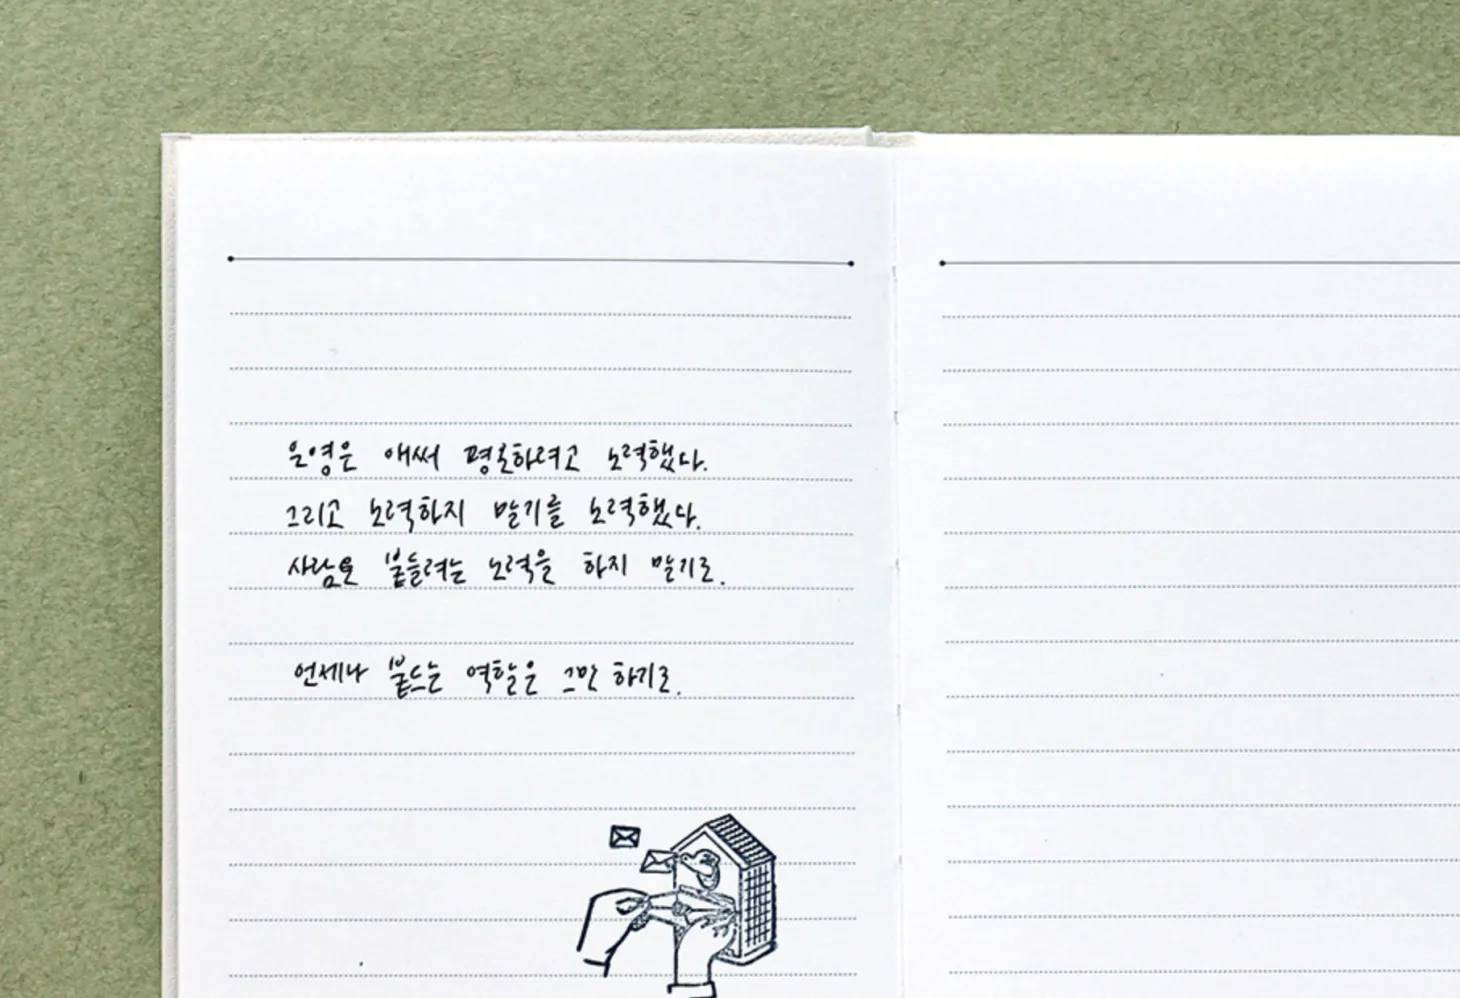 은영은 애써 평온하려고 노력했다.
그리고 노력하지 말기를 노력했다.
사람을 붙들려는 노력을 하지 말기로.
언제나 붙드는 역할은 그만 하기로.